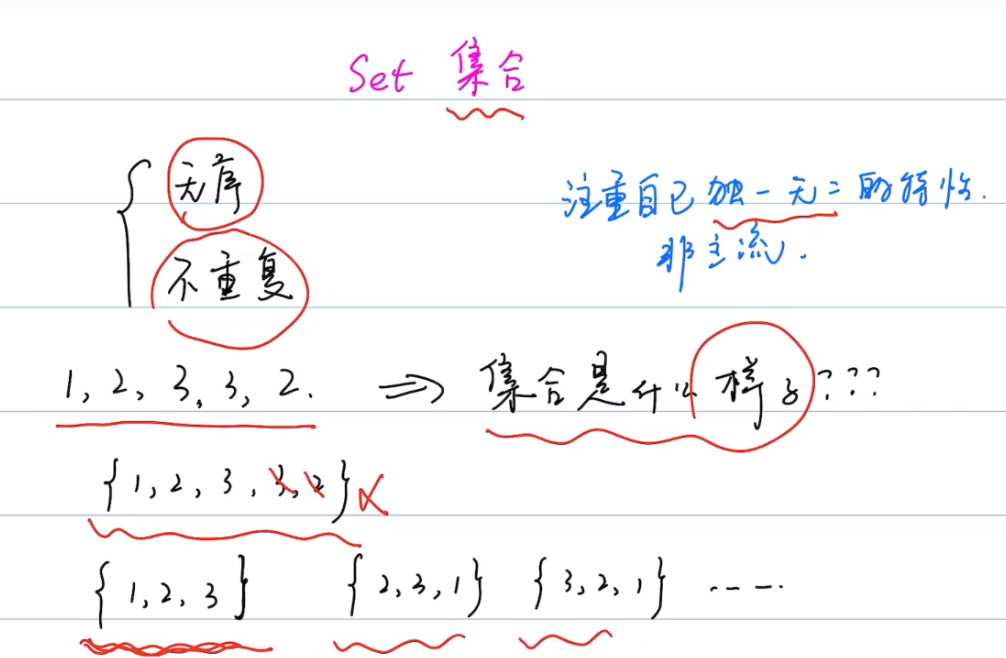 Set 集合
无序
不重复
注重自己独一无二的特性.
非主流.
1, 2, 3, 3, 2. ⇒ 集合是什么样子???
{1, 2, 3, 3, 2} ×
{1, 2, 3} {2, 3, 1} {3, 2, 1} ......